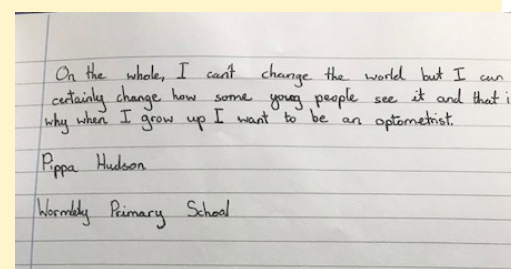 On the whole, I can't change the world but I can
certainly change how some young people see it and that i
why when I grow up I want to be an optometrist.
Pippa Hudson
Primary School